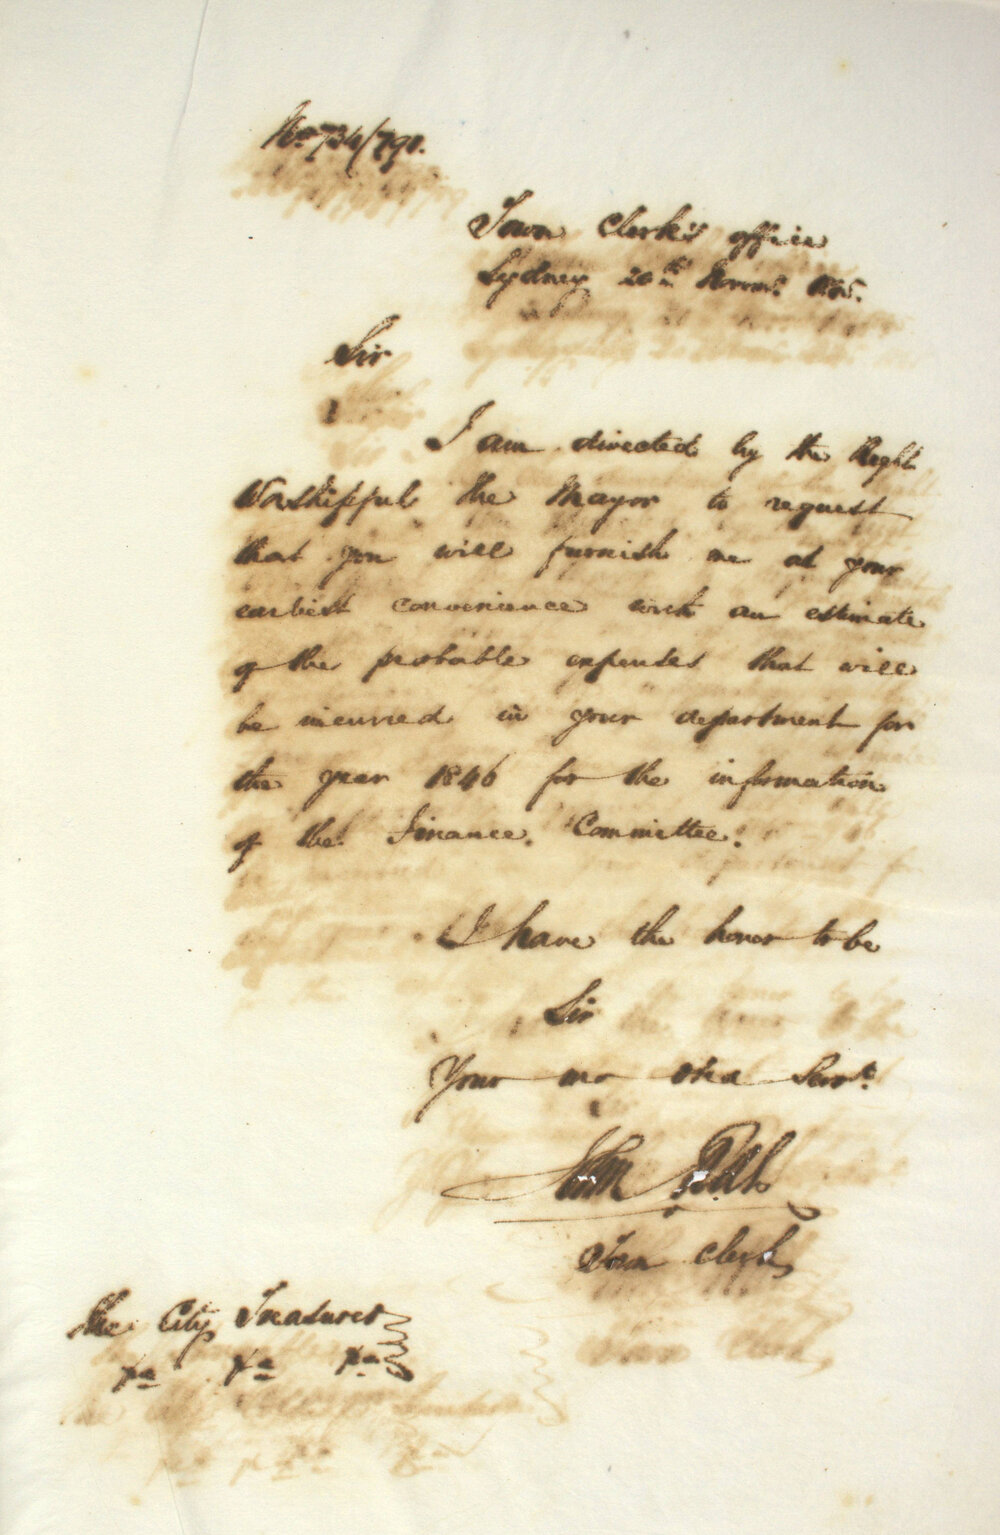 No 734/790.
Town Clerk's office
Sydney 20th Novemr. 1845.
Sir
I am directed by the Right
Worshipful the Mayor to request
that you will furnish me at your
earliest convenience with an estimate
of the probable expenses that will
be incurred in your department for
the year 1846 for the information
of the Finance Committee.
I have the honor to be
Sir
Your mo obed Servt.
John
Town Clerk
The City Treasurer